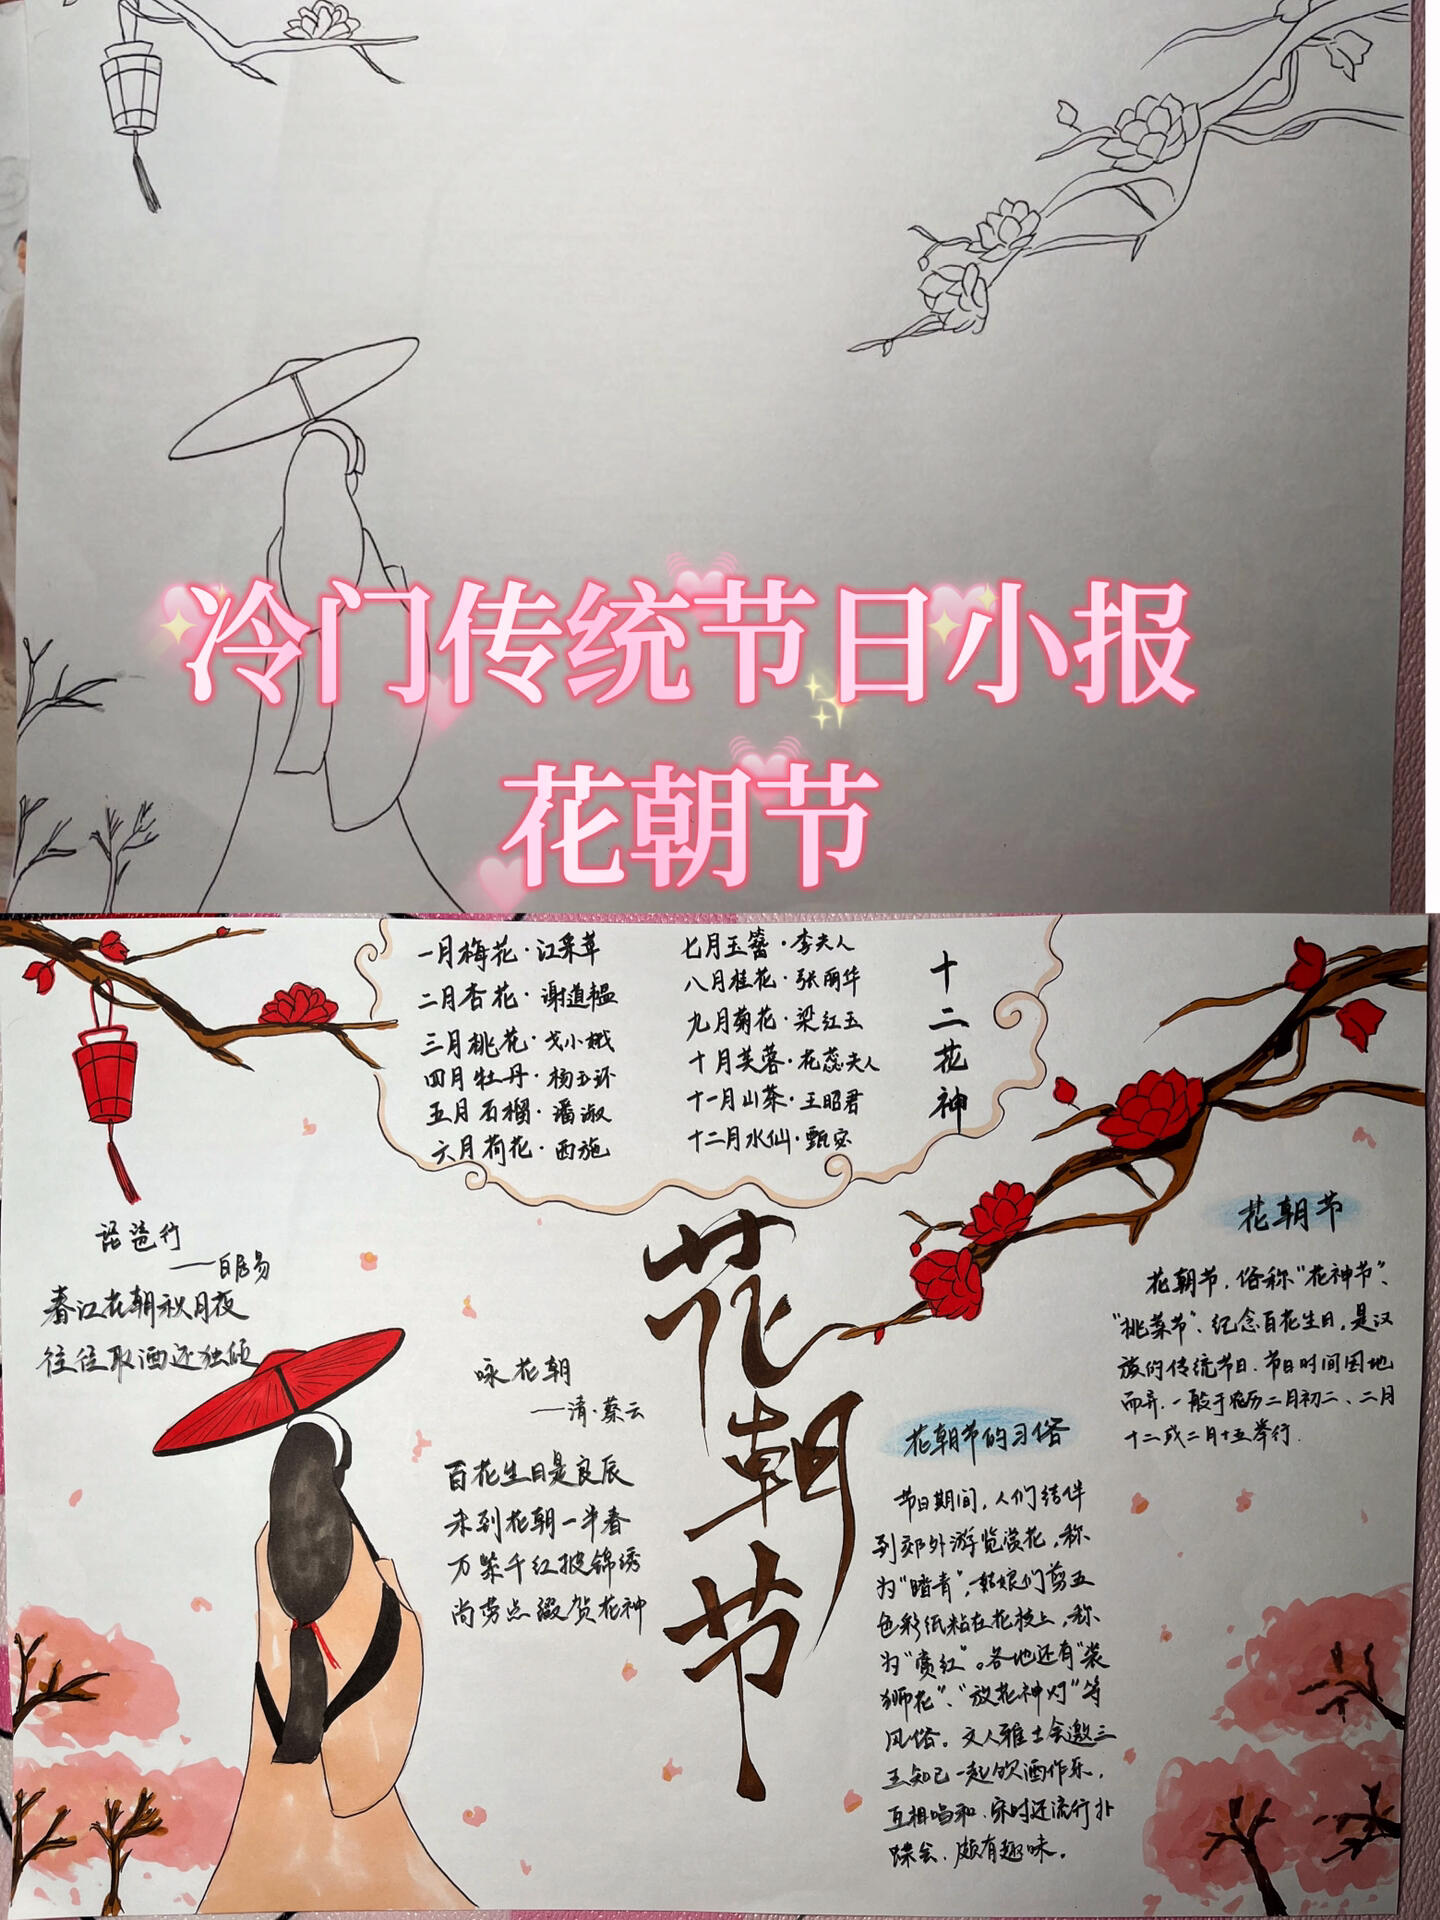 冷门传统节日小报
花朝节
一月梅花·江采苹
二月杏花·谢道韫
三月桃花·戈小娥
四月牡丹·杨玉环
五月石榴·潘淑
六月荷花·西施
七月玉簪·李夫人
八月桂花·张丽华
九月菊花·梁红玉
十月芙蓉·花蕊夫人
十一月山茶·王昭君
十二月水仙·甄宓
十二花神
琵琶行
——白居易
春江花朝秋月夜
往往取酒还独倾
咏花朝
——清·蔡云
百花生日是良辰
未到花朝一半春
万紫千红披锦绣
尚劳点缀贺花神
花朝节
花朝节
花朝节,俗称“花神节”、
“挑菜节”、纪念百花生日,是汉
族的传统节日.节日时间因地
而异.一般于农历二月初二、二月
十二或二月十五举行.
花朝节的习俗
节日期间,人们结伴
到郊外游览赏花,称
为“踏青”,姑娘们剪五
色彩纸粘在花枝上,称
为“赏红”。各地还有“装
狮花”、“放花神灯”等
风俗。文人雅士会邀三
五知己一起饮酒作乐,
互相唱和.宋时还流行扑
蝶会.颇有趣味。